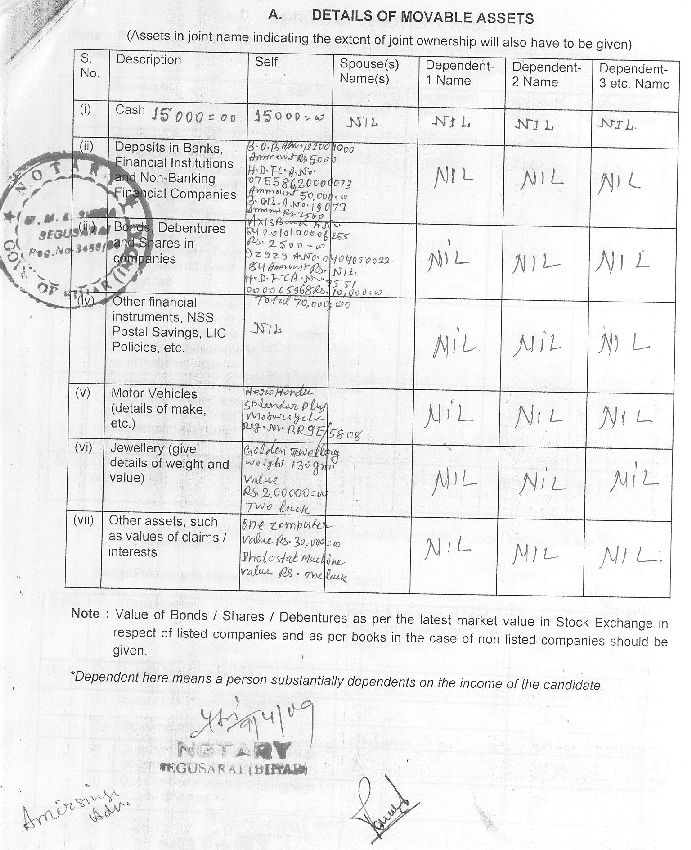 A. DETAILS OF MOVABLE ASSETS
(Assets in joint name indicating the extent of joint ownership will also have to be given)
S. No. Description Self Spouse(s) Name(s) Dependent-1 Name Dependent-2 Name Dependent-3 etc. Name
(i) Cash 15000=00 15000=00 NIL NIL NIL NIL
(ii) Deposits in Banks,
Financial Institutions
and Non-Banking
Financial Companies
Amount Rs 5000
07558620000073
Ammount 50,000=00
NIL NIL NIL
Bonds, Debentures
and Shares in
companies
Axis Bank A.No
Rs. 2500=00
Ammount Rs. NIL
NIL NIL NIL
(iv) Other financial
instruments, NSS
Postal Savings, LIC
Policies, etc.
Total 70,000=00
NIL
NIL NIL NIL
(v) Motor Vehicles
(details of make,
etc.)
Hero Honda
Splendor Plus
Motorcycle
NIL NIL NIL
(vi) Jewellery (give
details of weight and
value)
Golden Jewellery
weight 130 gm
Value
Rs 200000=00
Two lack
NIL NIL NIL
(vii) Other assets, such
as values of claims /
interests
One computer
Value Rs. 30,000=00
Photostat Machine
value Rs. one lack
NIL NIL NIL
Note : Value of Bonds / Shares / Debentures as per the latest market value in Stock Exchange in
respect of listed companies and as per books in the case of non listed companies should be
given.
*Dependent here means a person substantially dependents on the income of the candidate
NOTARY
BEGUSARAI (BIHAR)
NOTARY
BEGUSARAI
Reg.No-
GOVT. OF BIHAR (INDIA)
Adv.